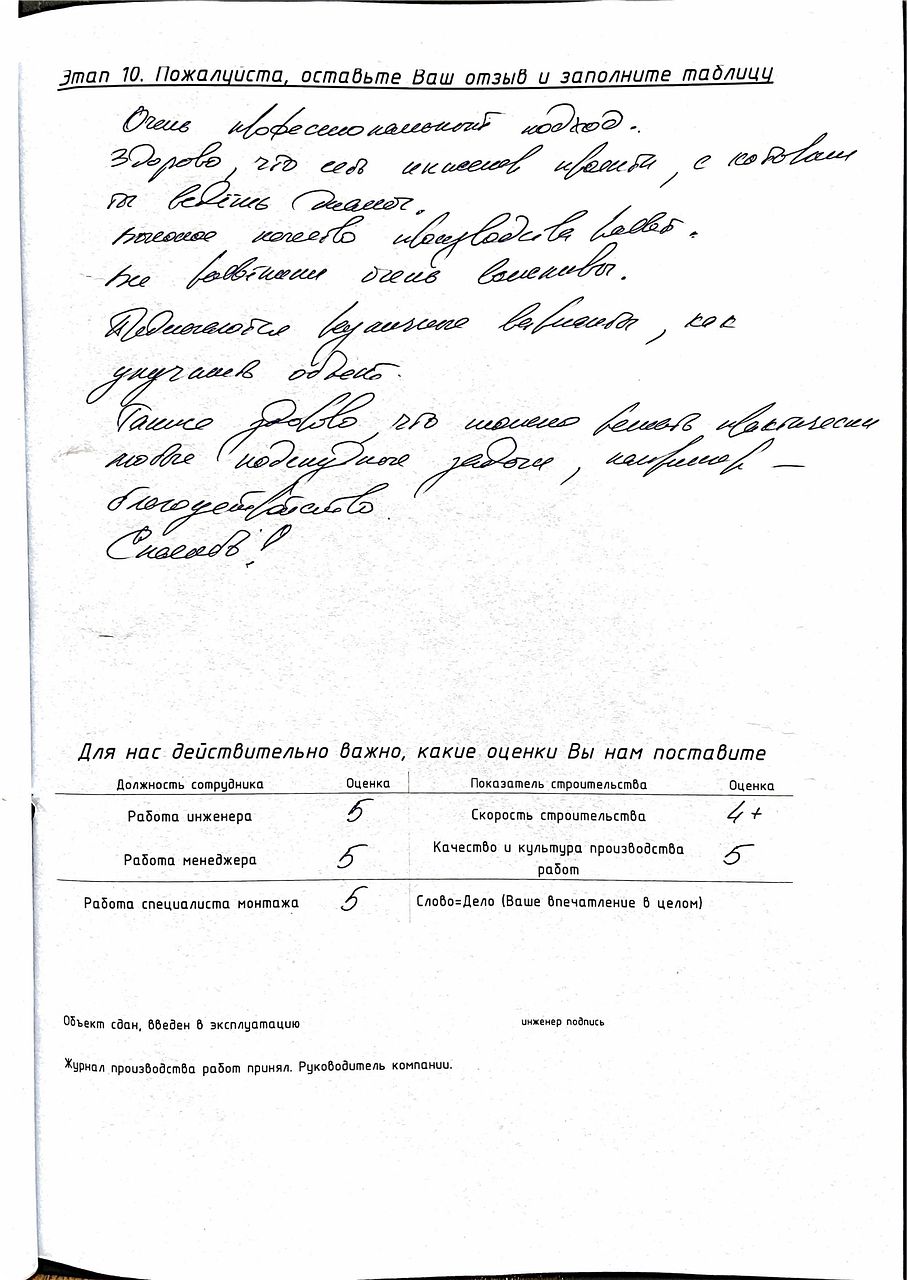 Этап 10. Пожалуйста, оставьте Ваш отзыв и заполните таблицу
Очень профессиональный подход.
Здорово, что есть инженер проекта, с которым
ты ведёшь диалог.
Высокое качество производства работ.
Все работники очень вежливы.
Предлагаются различные варианты, как
улучшить объект.
Также здорово, что можно решать практически
любые подспудные задачи, например —
благоустройство
Спасибо!
Для нас действительно важно, какие оценки Вы нам поставите
Должность сотрудника Оценка Показатель строительства Оценка
Работа инженера 5 Скорость строительства 4+
Работа менеджера 5 Качество и культура производства работ 5
Работа специалиста монтажа 5 Слово=Дело (Ваше впечатление в целом)
Объект сдан, введен в эксплуатацию инженер подпись
Журнал производства работ принял. Руководитель компании.